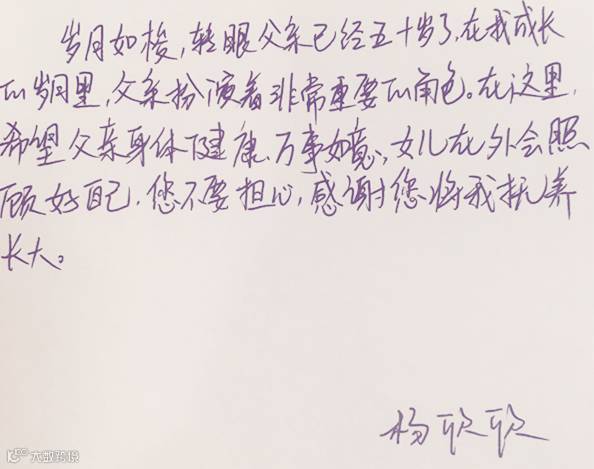 岁月如梭,转眼父亲已经五十岁了,在我成长
的岁月里,父亲扮演着非常重要的角色。在这里,
希望父亲身体健康、万事如意,女儿在外会照
顾好自己,您不要担心,感谢您将我抚养
长大。
杨
大数跨境